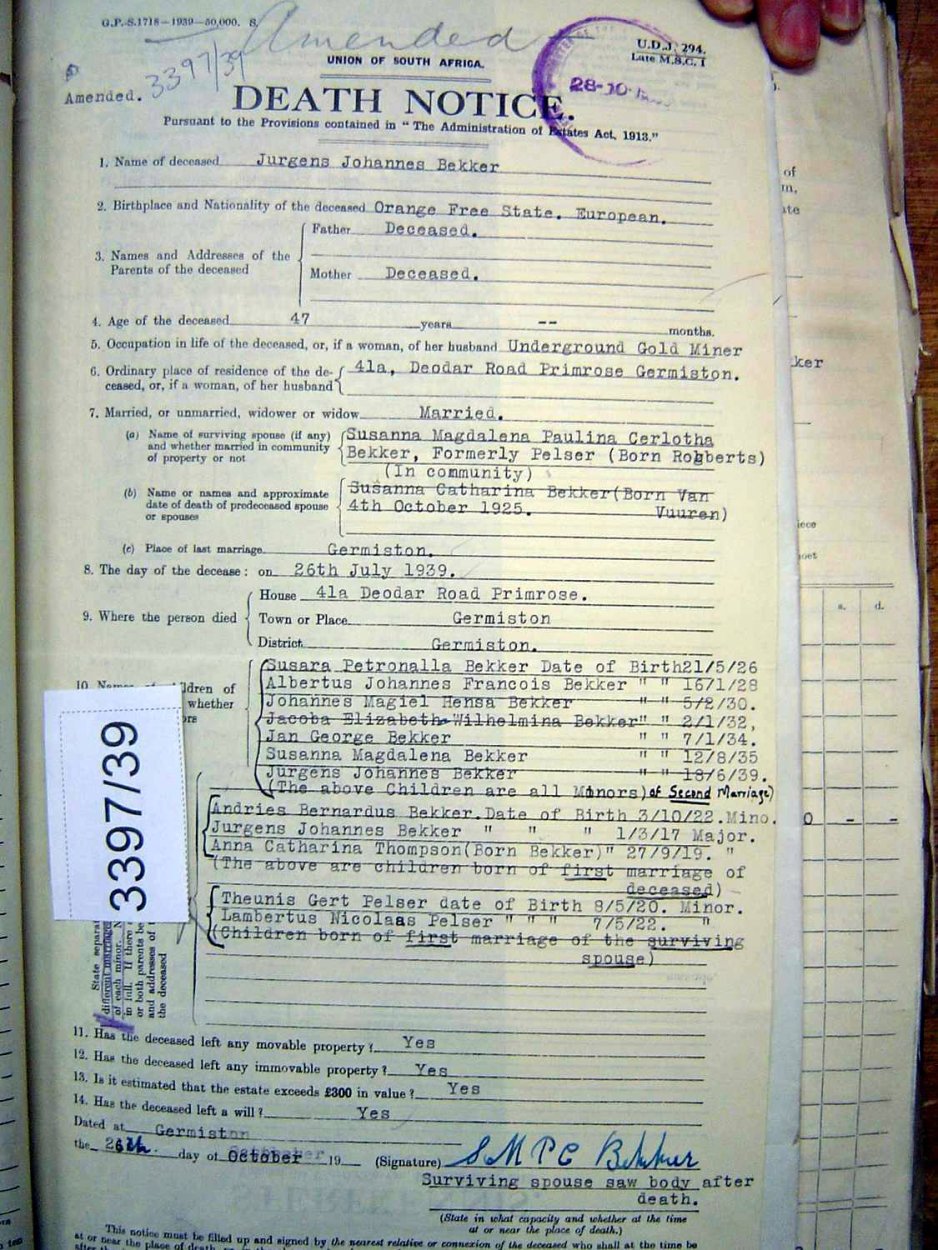 G.P.-S.1718-1939-50,000. S.
Amended
U.D.J. 294.
Late M.S.C. 1
3397/39
UNION OF SOUTH AFRICA.
28-10-
Amended.
DEATH NOTICE.
Pursuant to the Provisions contained in "The Administration of Estates Act, 1913."
1. Name of deceased Jurgens Johannes Bekker
2. Birthplace and Nationality of the deceased Orange Free State. European.
3. Names and Addresses of the Parents of the deceased
Father Deceased.
Mother Deceased.
4. Age of the deceased 47 years -- months.
5. Occupation in life of the deceased, or, if a woman, of her husband Underground Gold Miner
6. Ordinary place of residence of the deceased, or, if a woman, of her husband 41a, Deodar Road Primrose Germiston.
7. Married, or unmarried, widower or widow Married.
(a) Name of surviving spouse (if any) and whether married in community of property or not
Susanna Magdalena Paulina Cerlotha
Bekker, Formerly Pelser (Born Robberts)
(In community)
(b) Name or names and approximate date of death of predeceased spouse or spouses
Susanna Catharina Bekker(Born Van
4th October 1925. Vuuren)
(c) Place of last marriage Germiston.
8. The day of the decease: on 26th July 1939.
9. Where the person died
House 41a Deodar Road Primrose.
Town or Place Germiston
District Germiston.
10. Names of children of
whether
Susara Petronalla Bekker Date of Birth21/5/26
Albertus Johannes Francois Bekker " " 16/1/28
Johannes Magiel Hensa Bekker " " 5/2/30.
Jacoba Elizabeth Wilhelmina Bekker" " 2/1/32,
Jan George Bekker " " 7/1/34.
Susanna Magdalena Bekker " " 12/8/35
Jurgens Johannes Bekker " " 18/6/39.
(The above Children are all Minors) of Second Marriage)
Andries Bernardus Bekker.Date of Birth 3/10/22.Mino.
Jurgens Johannes Bekker " " " 1/3/17 Major.
Anna Catharina Thompson(Born Bekker)" 27/9/19. "
(The above are children born of first marriage of
deceased)
Theunis Gert Pelser date of Birth 8/5/20. Minor.
Lambertus Nicolaas Pelser " " " 7/5/22. "
(Children born of first marriage of the surviving
spouse)
3397/39
State separa
different marriage
of each minor.
in full. If there
or both parents be
and addresses of
the deceased
11. Has the deceased left any movable property? Yes
12. Has the deceased left any immovable property? Yes
13. Is it estimated that the estate exceeds £300 in value? Yes
14. Has the deceased left a will? Yes
Dated at Germiston
the 26th. day of October 19 (Signature) S M P C Bekker
Surviving spouse saw body after
death.
(State in what capacity and whether at the time
at or near the place of death.)
This notice must be filled up and signed by the nearest relative or connexion of the deceased who shall at the time be
at or near the place of death,
ker
s. d.
0 - -